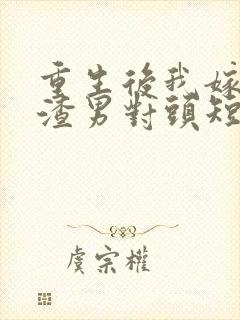 重生後我嫁
渣男對頭短
虞宗權